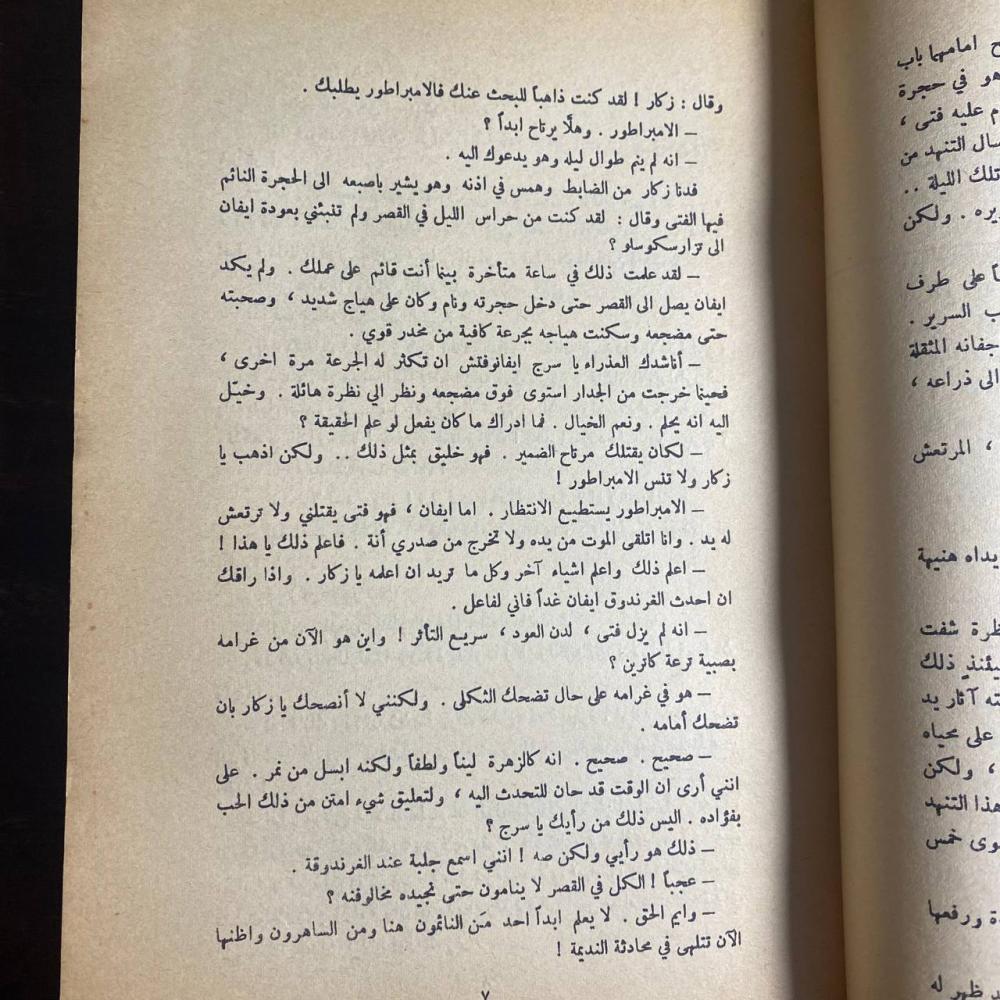 وقال : زكار ! لقد كنت ذاهباً للبحث عنك فالامبراطور يطلبك .
— الامبراطور . وهلَّا يرتاح ابداً ؟
— انه لم ينم طوال ليله وهو يدعوك اليه .
فدنا زكار من الضابط وهمس في اذنه وهو يشير باصبعه الى الحجرة النائم
فيها الفتى وقال : لقد كنت من حراس الليل في القصر ولم تنبئني بعودة ايفان
الى تزارسكوسلو ؟
— لقد علمت ذلك في ساعة متأخرة بينما أنت قائم على عملك . ولم يكد
ايفان يصل الى القصر حتى دخل حجرته ونام وكان على هياج شديد ، وصحبته
حتى مضجعه وسكنت هياجه بجرعة كافية من مخدر قوي .
— أناشدك العذراء يا سرج ايفانوفتش ان تكثر له الجرعة مرة اخرى ،
فحينما خرجت من الجدار استوى فوق مضجعه ونظر الي نظرة هائلة . وخيّل
اليه انه يحلم . ونعم الخيال . فما ادراك ما كان يفعل لو علم الحقيقة ؟
— لكان يقتلك مرتاح الضمير . فهو خليق بمثل ذلك .. ولكن اذهب يا
زكار ولا تنس الامبراطور !
— الامبراطور يستطيع الانتظار . اما ايفان ، فهو فتى يقتلني ولا ترتعش
له يد . وانا اتلقى الموت من يده ولا تخرج من صدري أنة . فاعلم ذلك يا هذا !
— اعلم ذلك واعلم اشياء آخر وكل ما تريد ان اعلمه يا زكار . واذا راقك
ان احدث الغرندوق ايفان غداً فاني لفاعل .
— انه لم يزل فتى ، لدن العود ، سريع التأثر ! واين هو الآن من غرامه
بصبية ترعة كاترين ؟
— هو في غرامه على حال تضحك الثكلى . ولكنني لا أنصحك يا زكار بان
تضحك أمامه .
— صحيح . صحيح . انه كالزهرة ليناً ولطفاً ولكنه ابسل من نمر . على
انني أرى ان الوقت قد حان للتحدث اليه ، ولتعليق شيء امتن من ذلك الحب
بفؤاده . اليس ذلك من رأيك يا سرج ؟
— ذلك هو رأيي ولكن صه ! انني اسمع جلبة عند الغرندوقة .
— عجباً ! الكل في القصر لا ينامون حتى تجيده مخالوفنه ؟
— وايم الحق . لا يعلم ابداً احد مَن النائمون هنا ومن الساهرون واظنها
الآن تتلهى في محادثة النديمة !
٧
امامهما باب
هو في حجرة
عليه فتى ،
التنهد من
تلك الليلة ..
ولكن
على طرف
السرير .
المثقلة
الى ذراعه ،
، المرتعش
يداه هنيهة
شفت
ذلك
آثار يد
على محياه
، ولكن
هذا التنهد
خمس
ورفعها
ظهر له